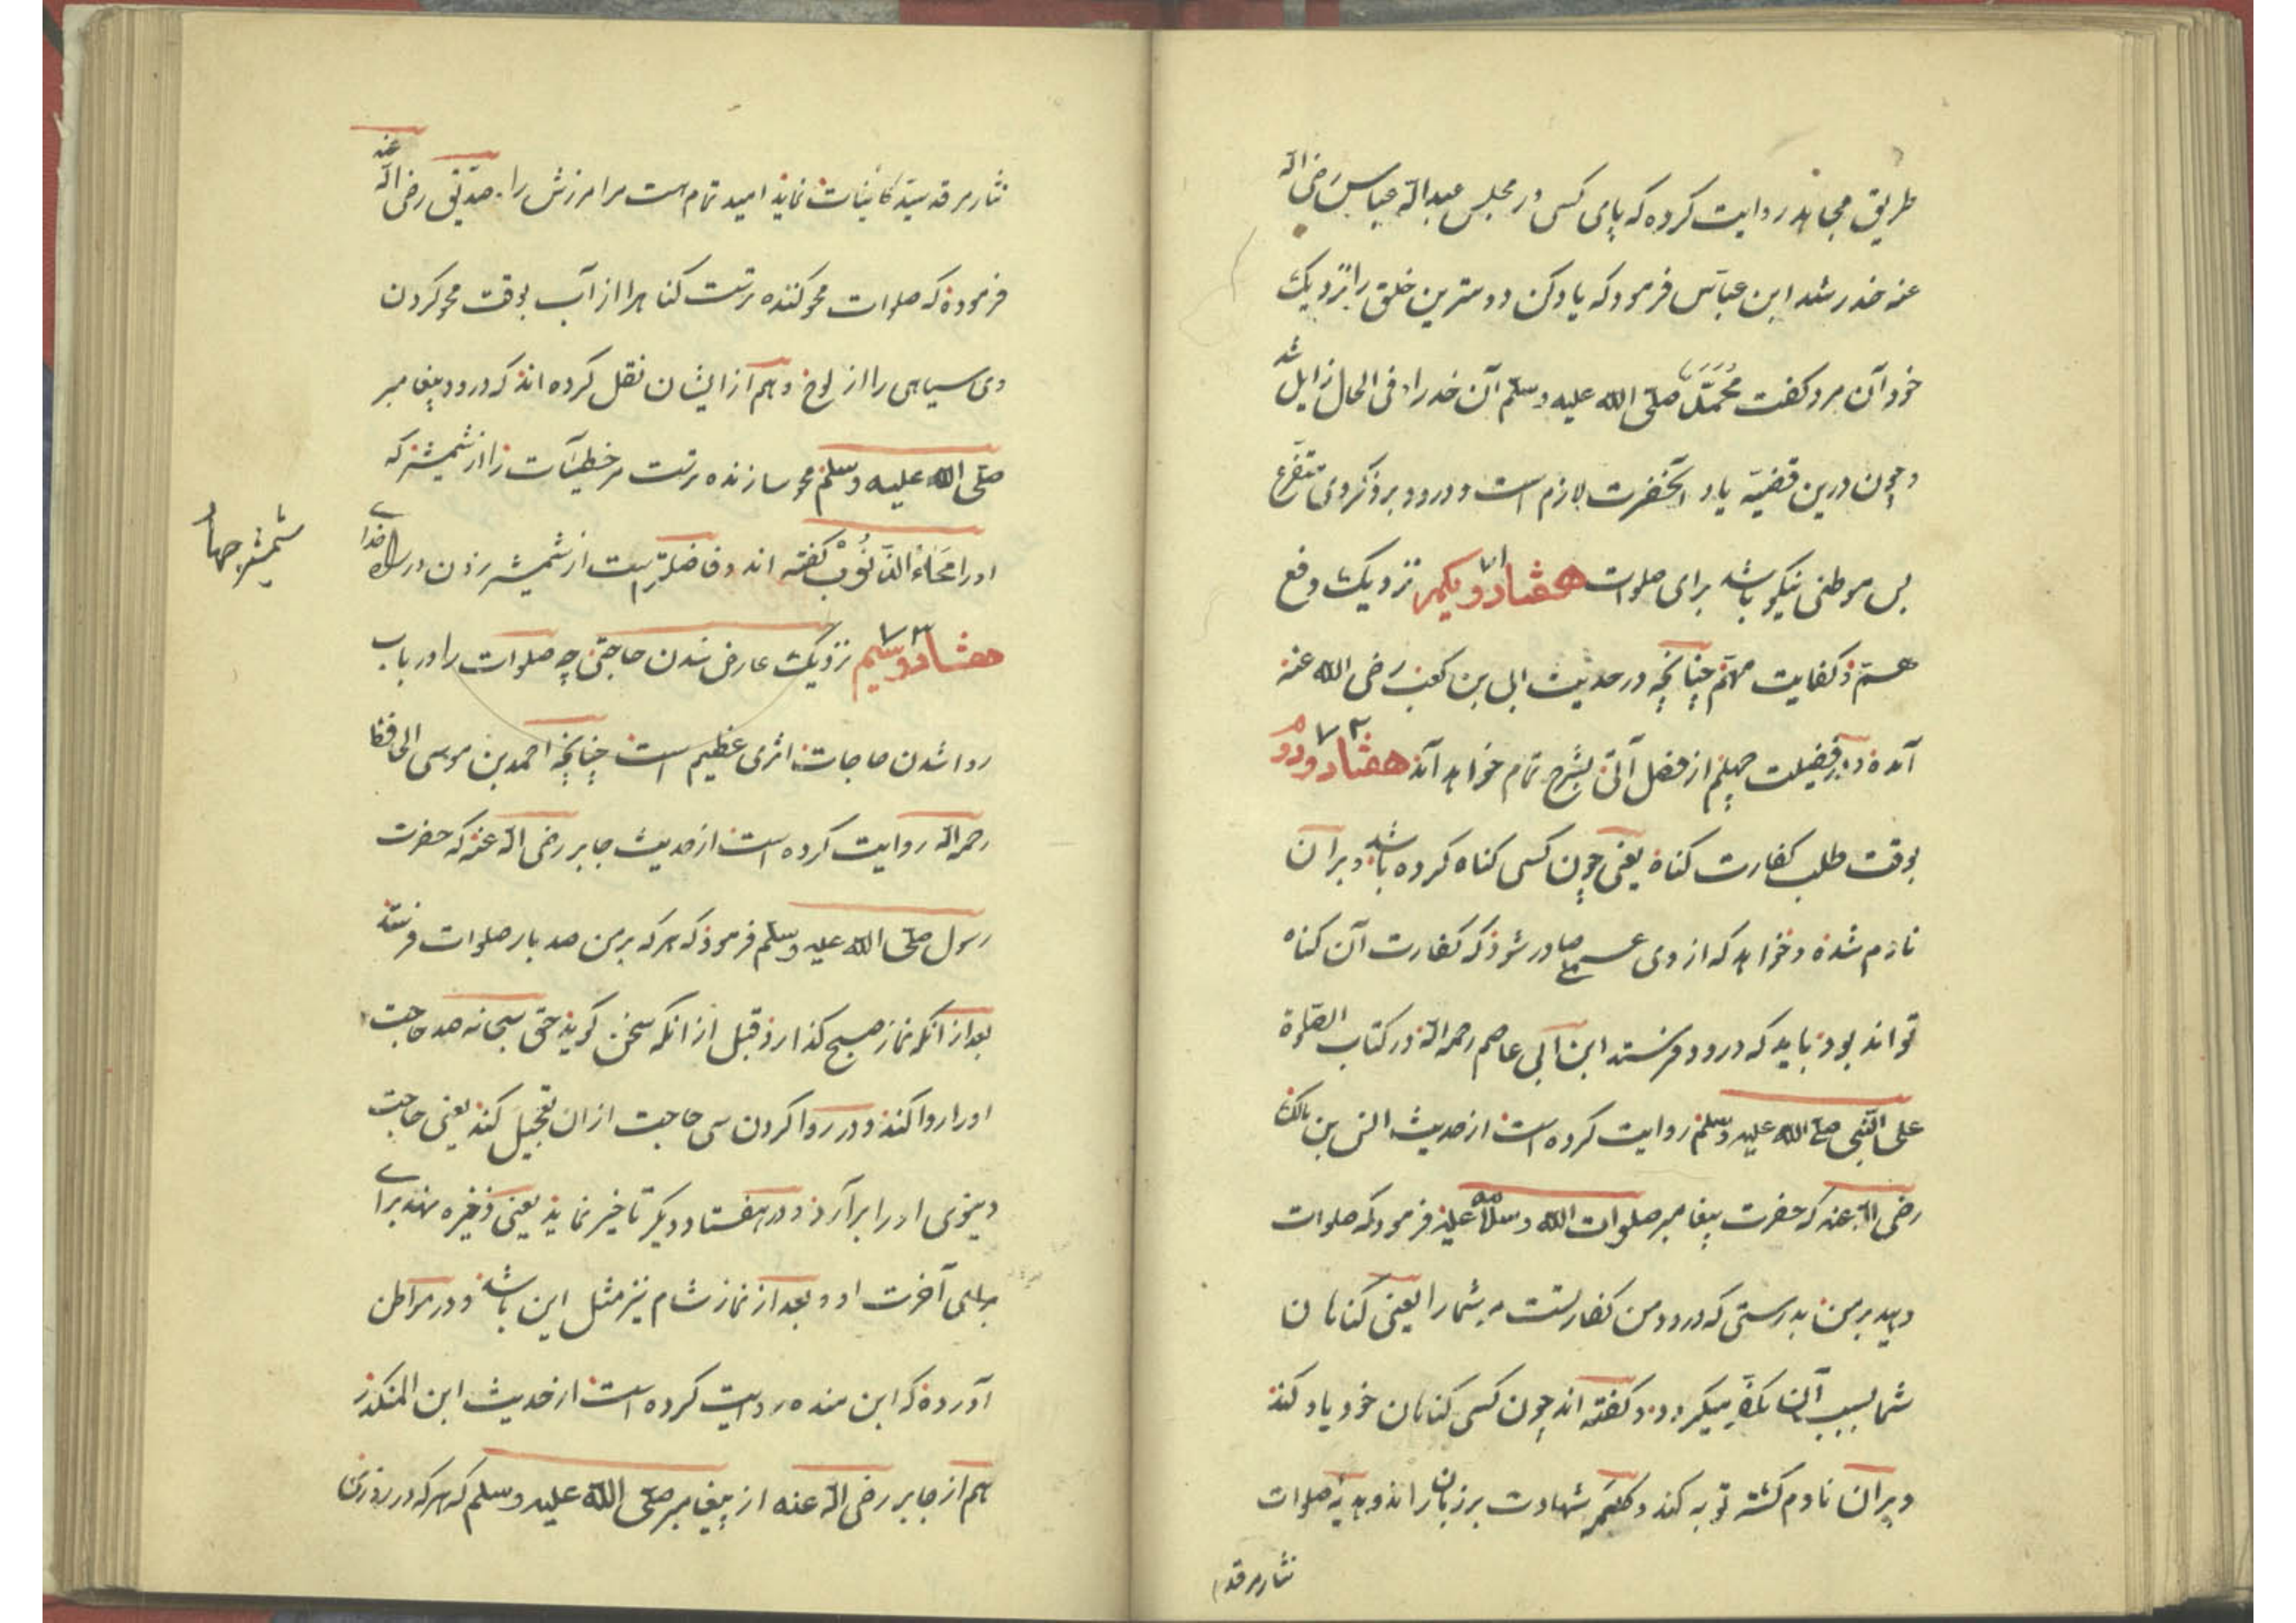 طریق مجاهد روایت کرده که پای کسی در مجلس عبدالله عباس رضی الله
عنه خدر شد ابن عباس فرمود که یاد کن دوسترین خلق را نزدیک
خود آن مرد کفت محمد صلی الله علیه وسلم آن خدر او فی الحال زایل شد
و چون درین قضیه یاد آنحضرت لازم است و درود بر ذکر وی متفرع
پس موطنی نیکو باشد برای صلوات هفتاد و یکم ۷۱ نزدیک وقع
هم و کفایت مهم چنانچه در حدیث ابی بن کعب رضی الله عنه
آمده و در فضیلت چهلم از فصل آتی بشرح تمام خواهد آمد هفتاد و دوم ۷۲
بوقت طلب کفارت کناه یعنی چون کسی کناه کرده باشد و بران
نادم شده و خواهد که از وی عملی صادر شود که کفارت آن کناه
تواند بود باید که درود فرستد ابن ابی عاصم رحمه الله در کتاب الصلوة
علی النبی صلی الله علیه وسلم روایت کرده است از حدیث انس بن مالک
رضی الله عنه که حضرت پیغامبر صلوات الله وسلامه علیه فرمود که صلوات
دهید بر من بدرستی که درود من کفارتست مر شما را یعنی کناهان
شما بسبب آن مکفر میکردد و کفته اند چون کسی کناهان خود یاد کند
و بران نادم کشته توبه کند و کلمه شهادت بر زبان راند و هدیه صلوات
نثار مرقد
نثار مرقد سید کائنات نماید امید تمام است مر امرزش را صدیق رضی الله عنه
فرموده که صلوات محو کننده ترست کناهرا از آب بوقت محو کردن
وی سیاهی را از لوح و هم از ایشان نقل کرده اند که درود پیغامبر
صلی الله علیه وسلم محو سازنده ترست مر خطیات را از شمشیر که
او را محاء الذنوب کفته اند و فاضلترست از شمشیر زدن در راه خدای
شمشیرجها
هفتاد و سیم ۷۳ نزدیک عارض شدن حاجتی چه صلوات را در باب
روا شدن حاجات اثری عظیم است چنانچه احمد بن موسی الحافظ
رحمه الله روایت کرده است از حدیث جابر رضی الله عنه که حضرت
رسول صلی الله علیه وسلم فرمود که هر که بر من صد بار صلوات فرستد
بعد از انکه نماز صبح کذارد قبل از انکه سخن کوید حق سبحانه صد حاجت
او را روا کند و در روا کردن سی حاجت ازان تعجیل کند یعنی حاجت
دنیوی او را برآرد و در هفتاد دیکر تاخیر نماید یعنی ذخیره نهد برای
برای آخرت او و بعد از نماز شام نیز مثل این باشد و در مواطن
آورده که ابن منده روایت کرده است از حدیث ابن المنکدر
هم از جابر رضی الله عنه از پیغامبر صلی الله علیه وسلم که هر که در روزی